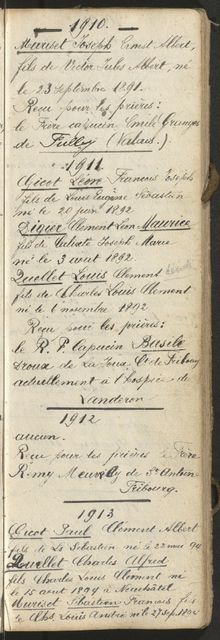 1910.
Muriset Joseph Ernest Albert,
fils de Victor Jules Albert, né
le 23 septembre 1891.
Reçu pour les prières:
le Frère capucin Emile Granges
de Fully (Valais.)
1911
Gicot Léon François Joseph
fils de Louis Eugène Sébastien
né le 20 juin 1892
Digier Clément Léon Maurice
fils de Joseph Marie
né le 3 août 1892
Quellet Louis Clément
fils de Charles Louis Clément
né le 6 novembre 1892
Reçu pour les prières:
le R. P. Capucin Basile
Droux de La Joux Ct de Fribourg
actuellement à l'hospice de
Landeron
1912
aucun.
Reçu pour les prières le Frère
Rémy de St Antoine
Fribourg.
1913
Gicot Paul Clément Albert
fils de Ls Sébastien né le 22 mai 94
Quellet Charles Alfred
fils Charles Louis Clément né
le 15 août 1894 à Neuchâtel
Muriset Sébastien François fils
de Chs Louis André né le 27 sep. 1894